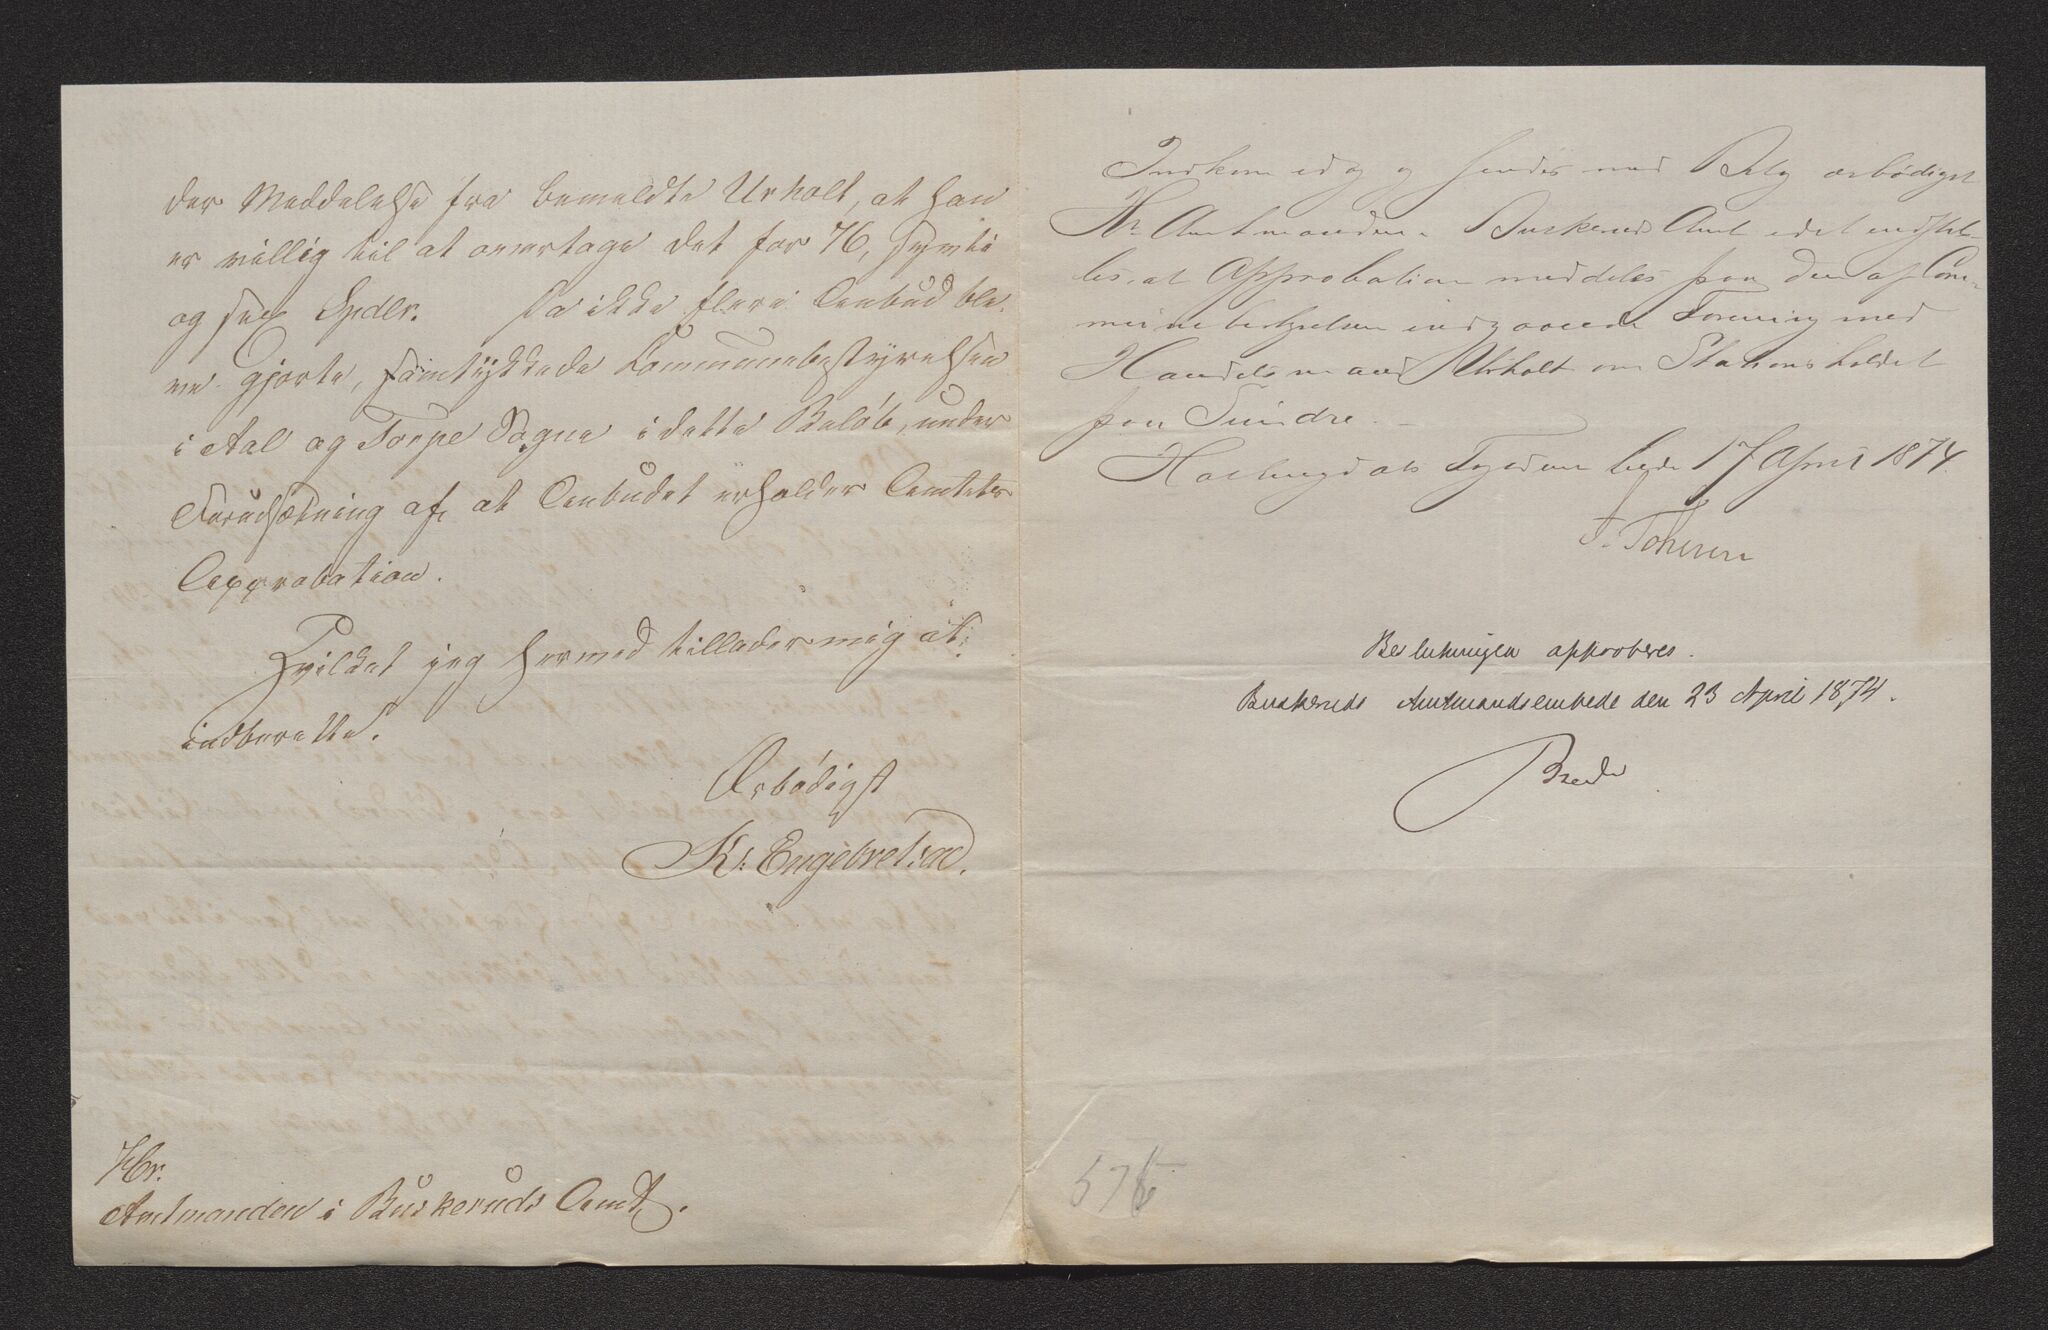 der Meddelelse fra bemeldte Urholt, at han
er villig til at overtage det for 76, sytti
og sex Spdlr. Da ikke flere Anbud ble-
ve gjorte, samtykkede Kommunebestyrelsen
i Aal og Torpe Sogne i dette Beløb, under
Forudsætning af, at Anbudet erholder Amtets
Approbation.
Hvilket jeg hermed tillader mig at
indberette.
Ærbødigst
K. Engebretsen.
Hr.
Amtmanden i Buskeruds Amt.
Indkom idag og sendes med Bilag ærbødigst
Hr Amtmanden i Buskeruds Amt idet indstil-
les, at Approbation meddeles paa den af Com-
munebestyrelsen indgaaede Forening med
Handelsmand Urholt om Stationsholdet
paa Sundre.
Hallingdals Fogderi 17 April 1874.
Beslutningen approberes.
Buskeruds Amtmandsembede den 23 April 1874.
Breda
578